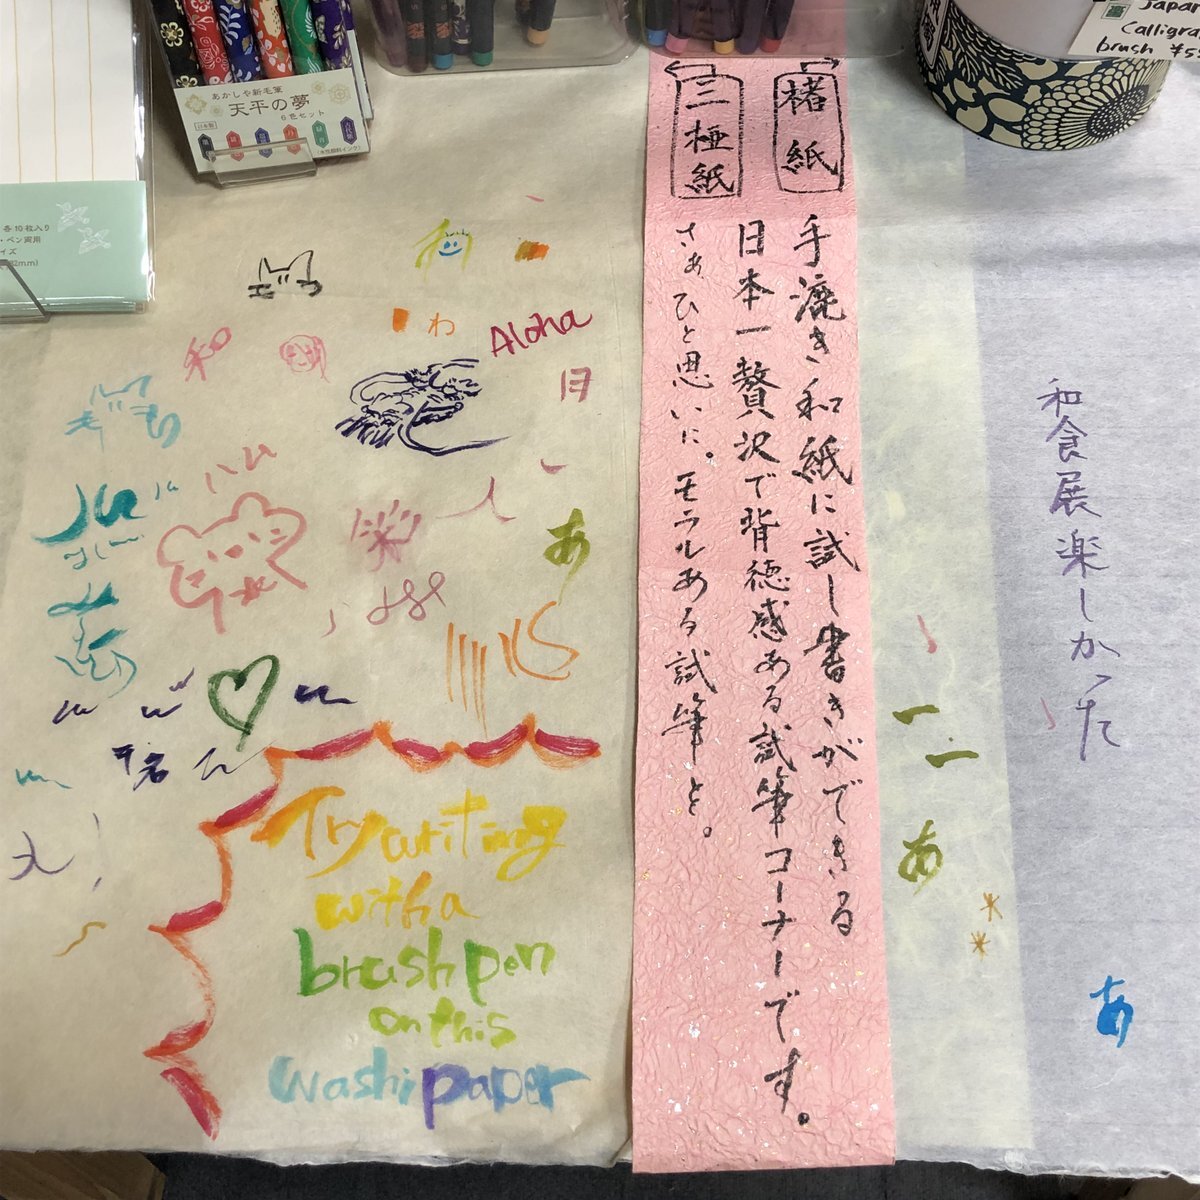 あかしや新毛筆
天平の夢
6色セット
日本製
(水性顔料インク)
各10枚入り
・ペン両用
イズ
Japan
Calligra
brush ¥55
楮紙
三椏紙
手漉き和紙に試し書きができる
日本一贅沢で背徳感ある試筆コーナーです。
さぁ、ひと思いに。モラルある試筆を。
和食展楽しかった
わ
Aloha
和
月
ハム
あ
一
一
あ
あ
Try writing
with a
brush pen
on this
washi paper